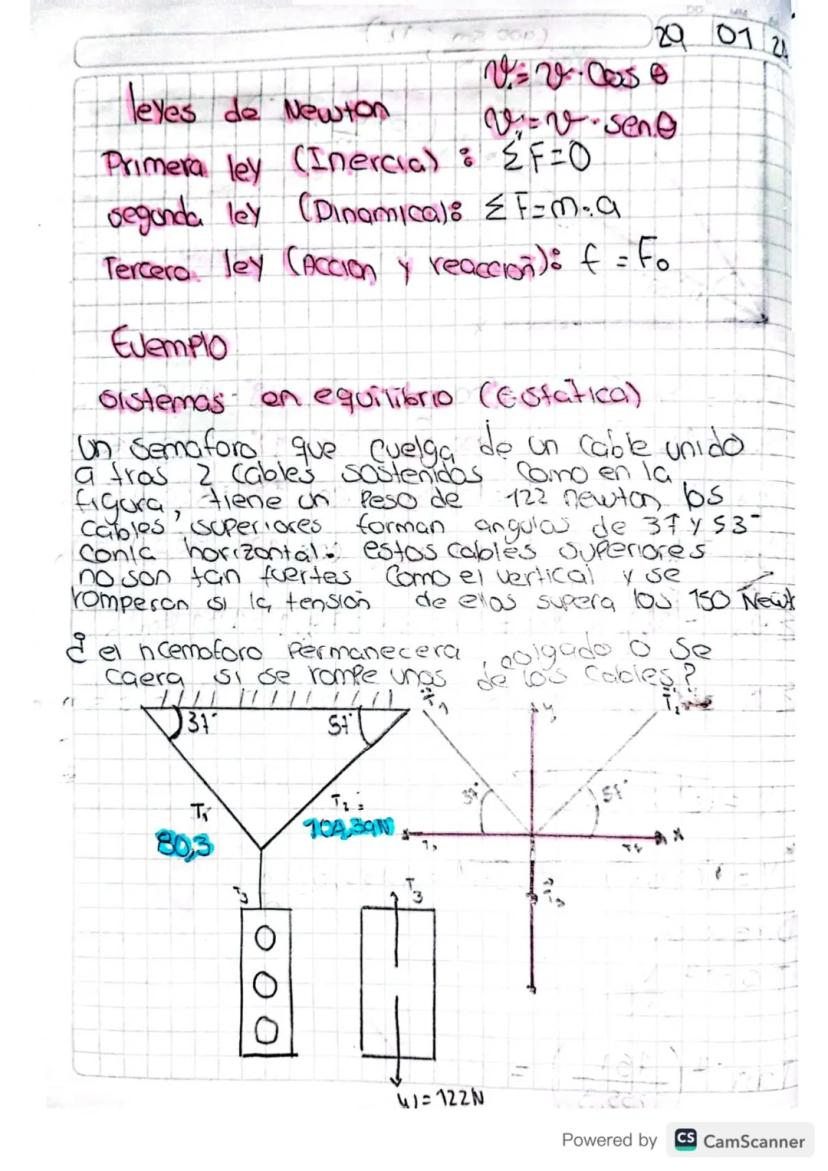 29 01 2
leyes de Newton
V = V · Cos θ
V = V · sen.θ
Primera ley (Inercia) : ΣF=0
segunda ley (Dinamica): ΣF=m·a
Tercera ley (Accion y reacción): f = Fo
Ejemplo
sistemas en equilibrio (Estática)
Un semaforo que cuelga de un cable unido
a tras 2 cables sostenidos como en la
figura, tiene un Peso de 122 newton los
cables superiores forman angulos de 37 y 53°
con la horizontal. estos cables superiores
no son tan fuertes como el vertical y se
romperan si la tensión de elas supera los 150 Newt
¿ el ncemaforo Permanecera colgado o se
caera si se rompe unas de los cables?
37°
T1
T2
y
T1
T2 =
80,3
104,39N
x
T3
T3
T3
W = 122N
Powered by CS CamScanner